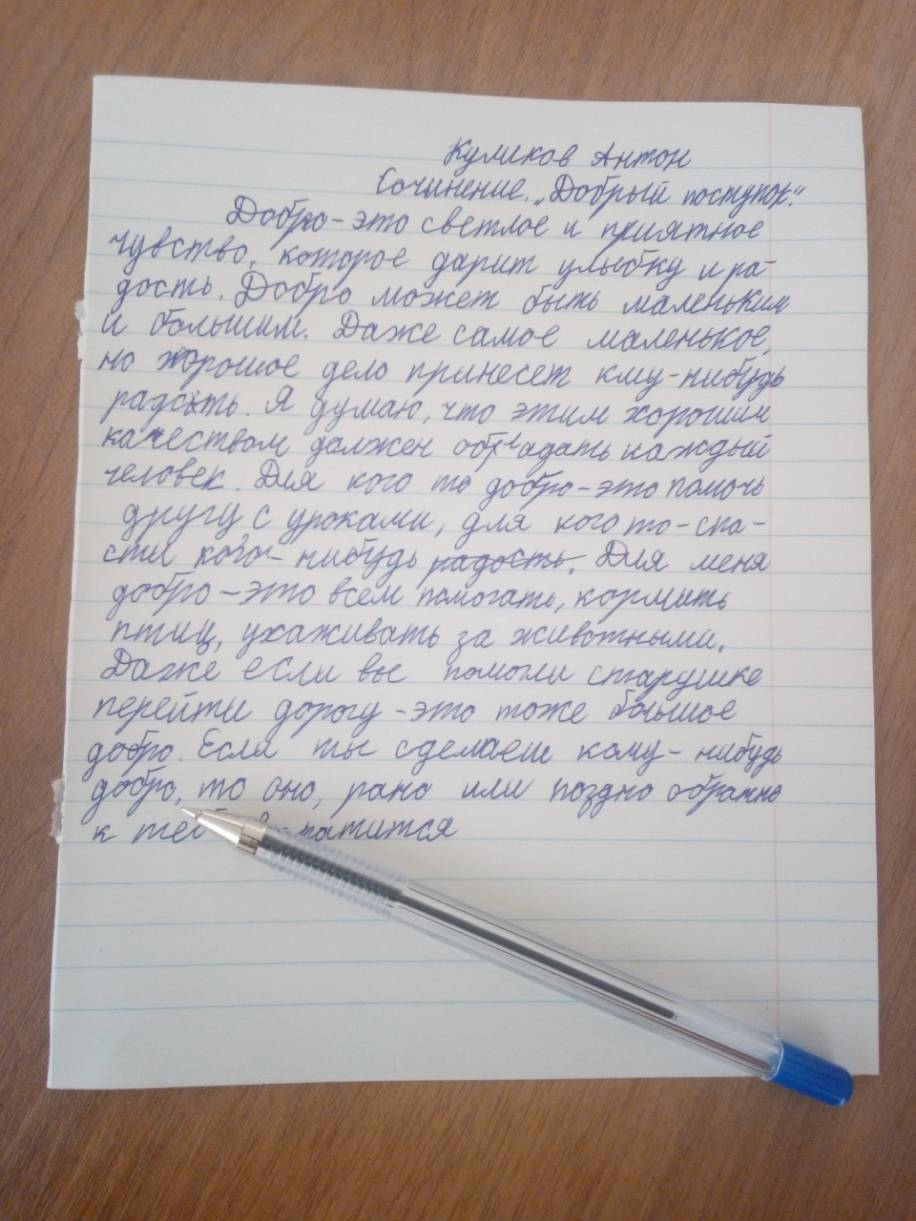 Куликов Антон
Сочинение „Добрый поступок".
Добро - это светлое и приятное
чувство, которое дарит улыбку и ра-
дость. Добро может быть маленьким
и большим. Даже самое маленькое,
но хорошое дело принесет кму-нибудь
радсыть. Я думаю, что этим хорошим
качеством должен обладать каждый
человек. Для кого то добро - это помочь
другу с уроками, для кого то - спа-
сти кого - нибудь радость. Для меня
добро - это всем помогать, кормить
птиц, ухаживать за животными.
Даже если вы помогли старушке
перейти дорогу - это тоже большое
добро. Если ты сделаеш кому - нибудь
добро, то оно, рано или поздно обратно
к